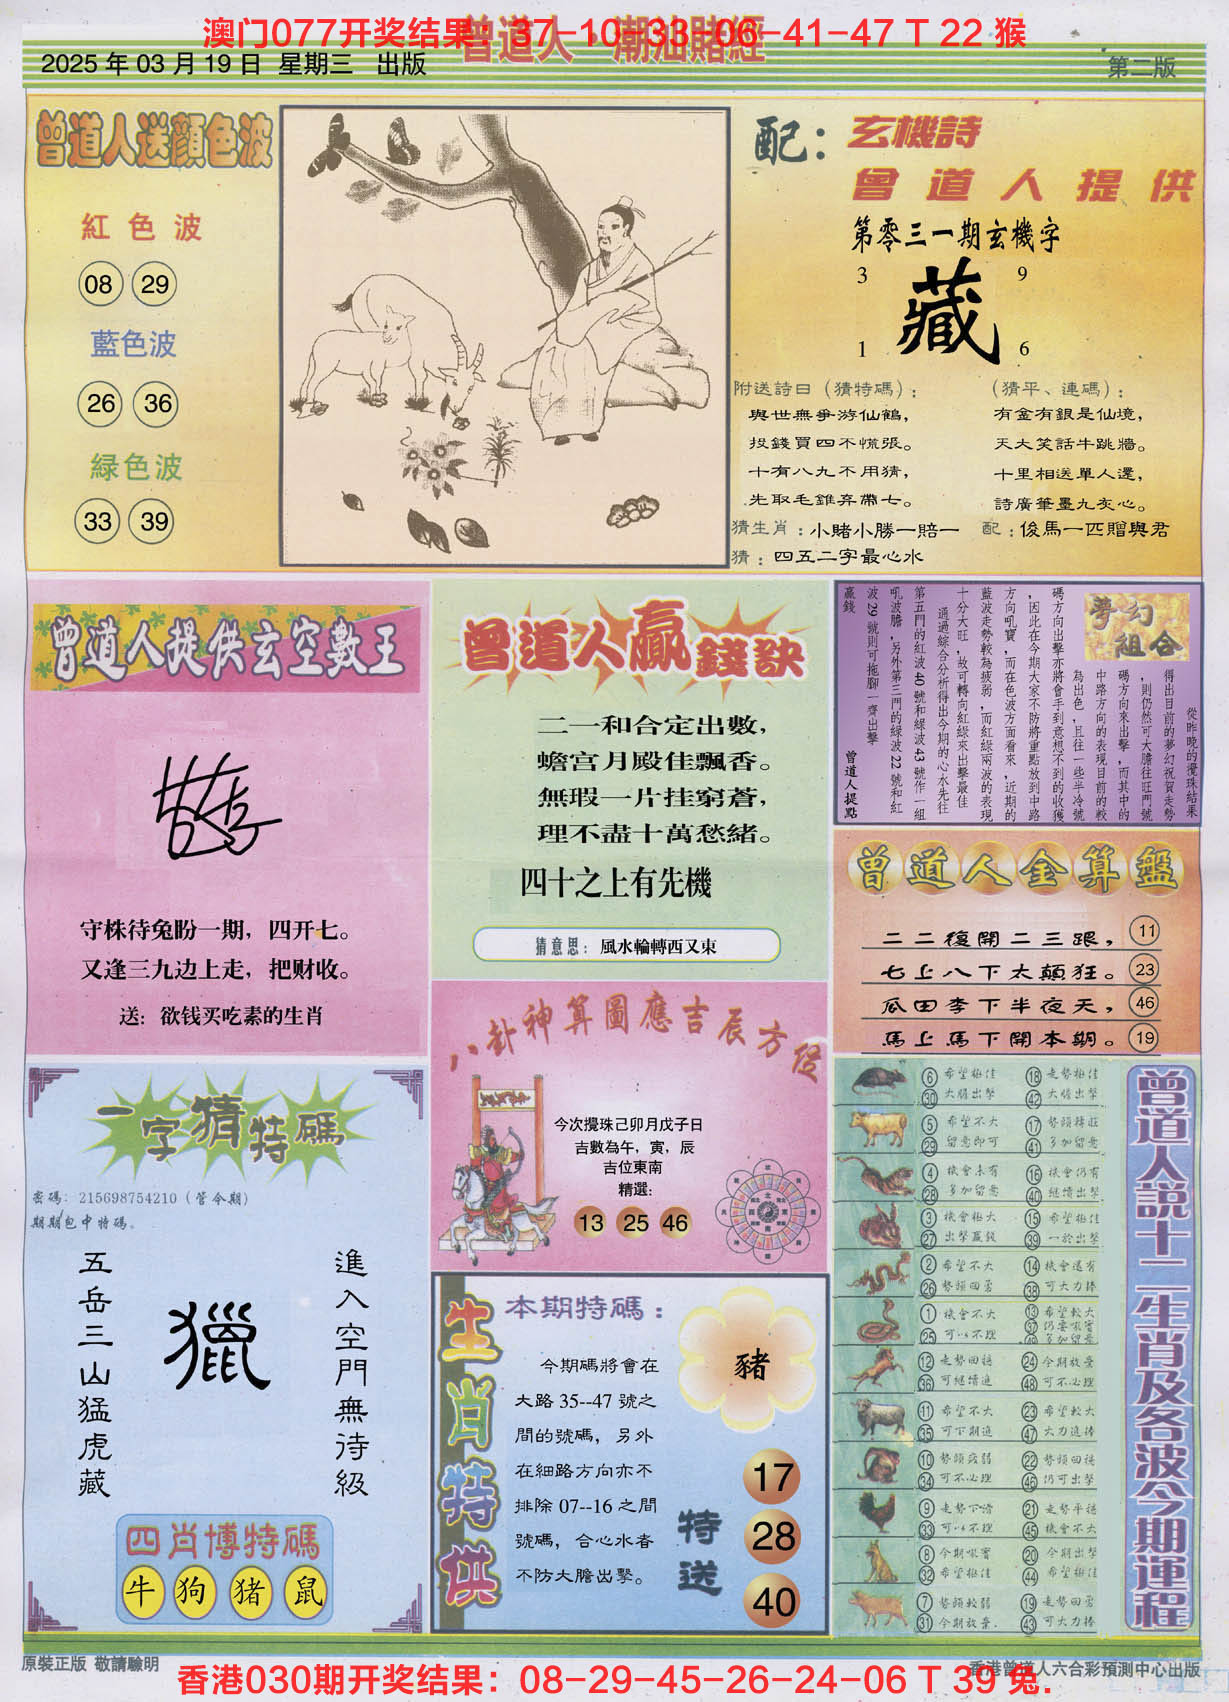 澳门077开奖结果：37-10-33-06-41-47 T 22 猴
曾道人·潮汕賭經
2025 年 03 月 19 日 星期三 出版
第二版
曾道人送顏色波
紅色波
08 29
藍色波
26 36
緑色波
33 39
配：玄機詩
曾道人提供
第零三一期玄機字
3 9
藏
1 6
附送詩曰（猜特碼）：
與世無爭游仙鶴，
投錢買四不慌張。
十有八九不用猜，
先取毛錐弃帶七。
（猜平、連碼）：
有金有銀是仙境，
天大笑話牛跳牆。
十里相送單人還，
詩廣筆墨九灰心。
猜生肖：小賭小勝一賠一
配：俊馬一匹贈與君
猜：四五二字最心水
曾道人提供玄空數王
守株待兔盼一期，四开七。
又逢三九边上走，把财收。
送：欲钱买吃素的生肖
曾道人贏錢訣
二一和合定出數，
蟾宫月殿佳飄香。
無瑕一片挂窮蒼，
理不盡十萬愁緒。
四十之上有先機
猜意思：風水輪轉西又東
夢幻組合
從昨晚的攪珠結果
得出目前的夢幻祝賀走勢
，則仍然可大膽往旺門號
碼方向來出擊，而其中的
中路方向的表現目前的較
為出色，且往一些半冷號
碼方向出擊亦將會手到意想不到的收獲
，因此在今期大家不防將重點放到中路
方向吼寶，而在色波方面看來，近期的
藍波走勢較為疲弱，而紅綠兩波的表現
十分大旺，故可轉向紅綠來出擊最佳
通過綜合分析得出今期的心水先往
第五門的紅波 40 號和綠波 43 號作一組
吼波膽，另外第三門的綠波 22 號和紅
波 29 號則可拖腳一齊出擊
贏錢
曾道人提點
曾道人金算盤
二二復開二三跟， 11
七上八下太顛狂。 23
瓜田李下半夜天， 46
馬上馬下開本期。 19
一字猜特碼
密碼：215698754210（管令期）
期期包中特碼。
五岳三山猛虎藏
獵
進入空門無待級
四肖博特碼
牛 狗 猪 鼠
八卦神算圖應吉辰方位
今次攪珠己卯月戊子日
吉數為午，寅，辰
吉位東南
精選：
13 25 46
生肖特供
本期特碼：
今期碼將會在
大路 35--47 號之
間的號碼，另外
在細路方向亦不
排除 07--16 之間
號碼，合心水者
不防大膽出擊。
豬
特送
17
28
40
曾道人説十二生肖及各波今期運程
6 希望極佳 18 走勢極佳
30 大膽出擊 42 大膽出擊
5 希望不大 17 勢頭轉旺
29 留意即可 41 多加留意
4 機會未有 16 機會仍有
28 多加留意 40 繼續出擊
3 機會極大 15 希望極佳
27 出擊贏錢 39 一於出擊
2 希望不大 14 機會還有
26 勢頭回勇 38 可大力捧
1 機會不大 13 希望較大
25 可以不理 37 仍要吼實
49 多加留意
12 走勢回穩 24 今期放棄
36 可繼續進 48 可不必理
11 希望不大 23 希望較大
35 可下期進 47 大力進捧
10 勢頭疲弱 22 勢頭回穩
34 可不必理 46 仍可出擊
9 走勢下滑 21 走勢平穩
33 可以不理 45 機會不大
8 今期吼實 20 今期出擊
32 希望極佳 44 希望極佳
7 勢頭較弱 19 走勢回勇
31 今期放棄. 43 可大力捧
原裝正版 敬請驗明
香港曾道人六合彩預測中心出版
香港030期开奖结果：08-29-45-26-24-06 T 39 兔.